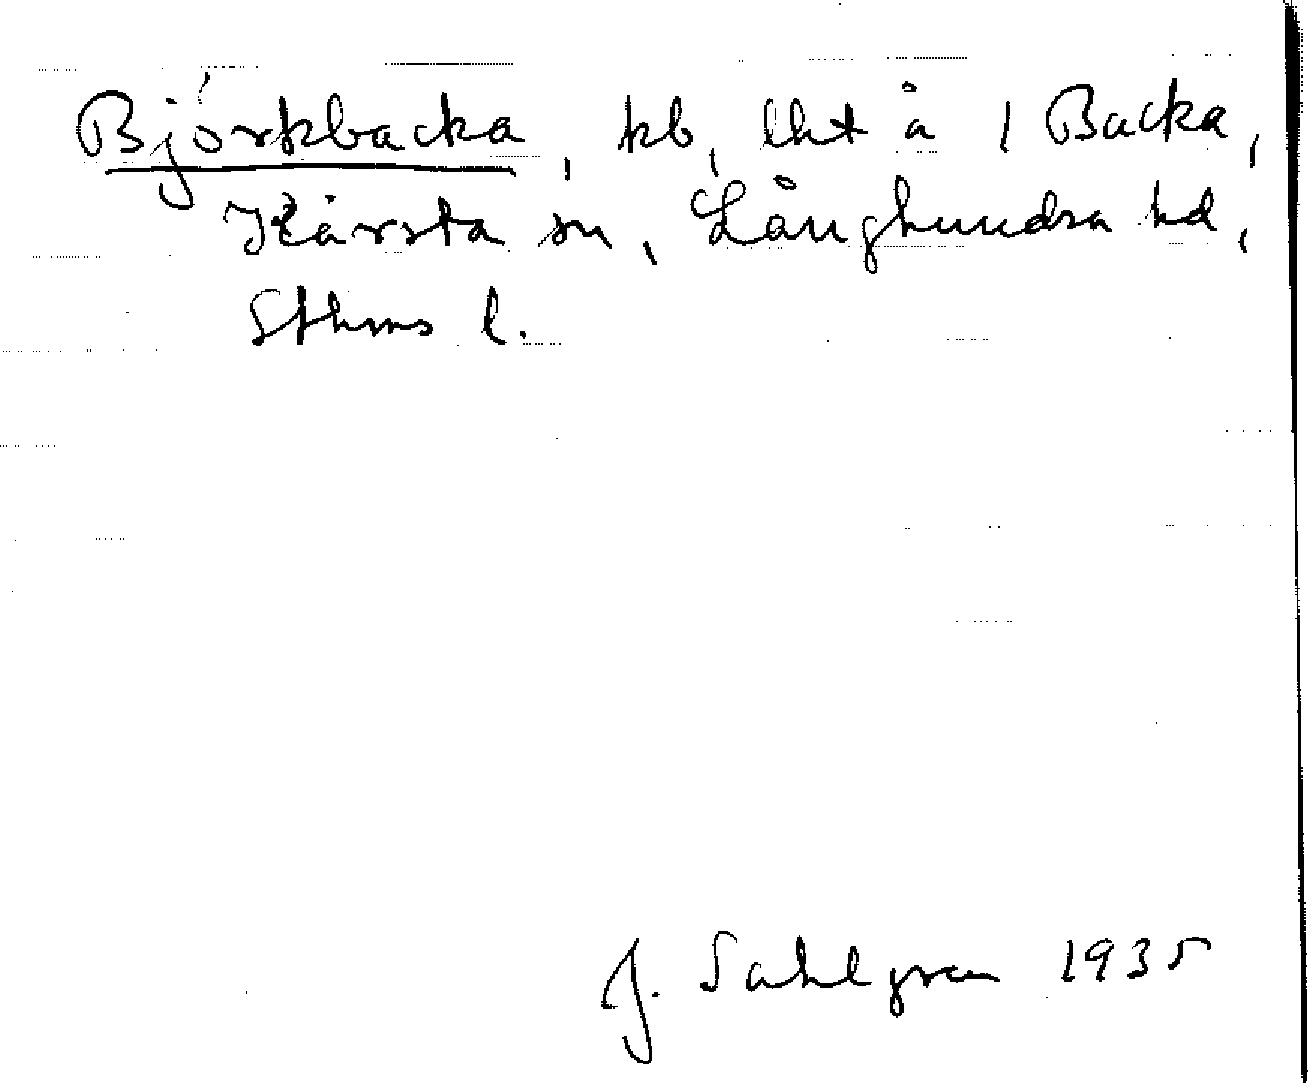 Björkbacka, kb, lht å 1 Backa,
Kårsta sn, Långhundra hd,
Sthms l.
J. Sahlgren 1935